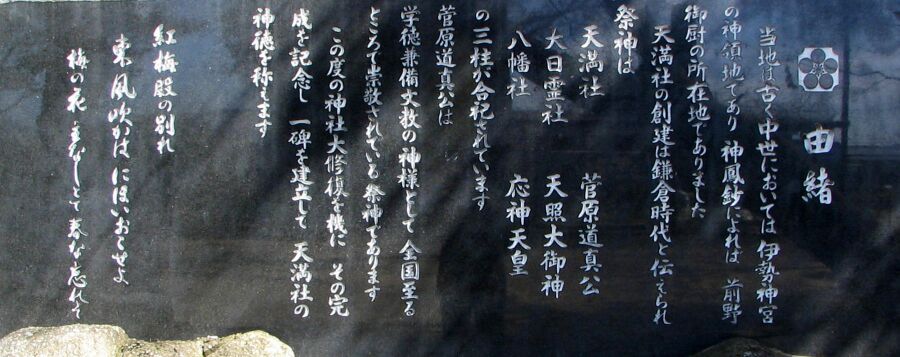 由緒
当地は古く中世においては 伊勢神宮
の神領地であり 神鳳鈔によれば 前野
御厨の所在地でありました
天満社の創建は鎌倉時代と伝えられ
祭神は
天満社 菅原道真公
大日霊社 天照大御神
八幡社 応神天皇
の三柱が合祀されています
菅原道真公は
学徳兼備文教の神様として 全国至る
ところで崇敬されている祭神であります
この度の神社大修復を機に その完
成を記念し 一碑を建立して 天満社の
神徳を称えます
紅梅殿の別れ
東風吹かば にほいおこせよ
梅の花 主なしとて 春な忘れそ